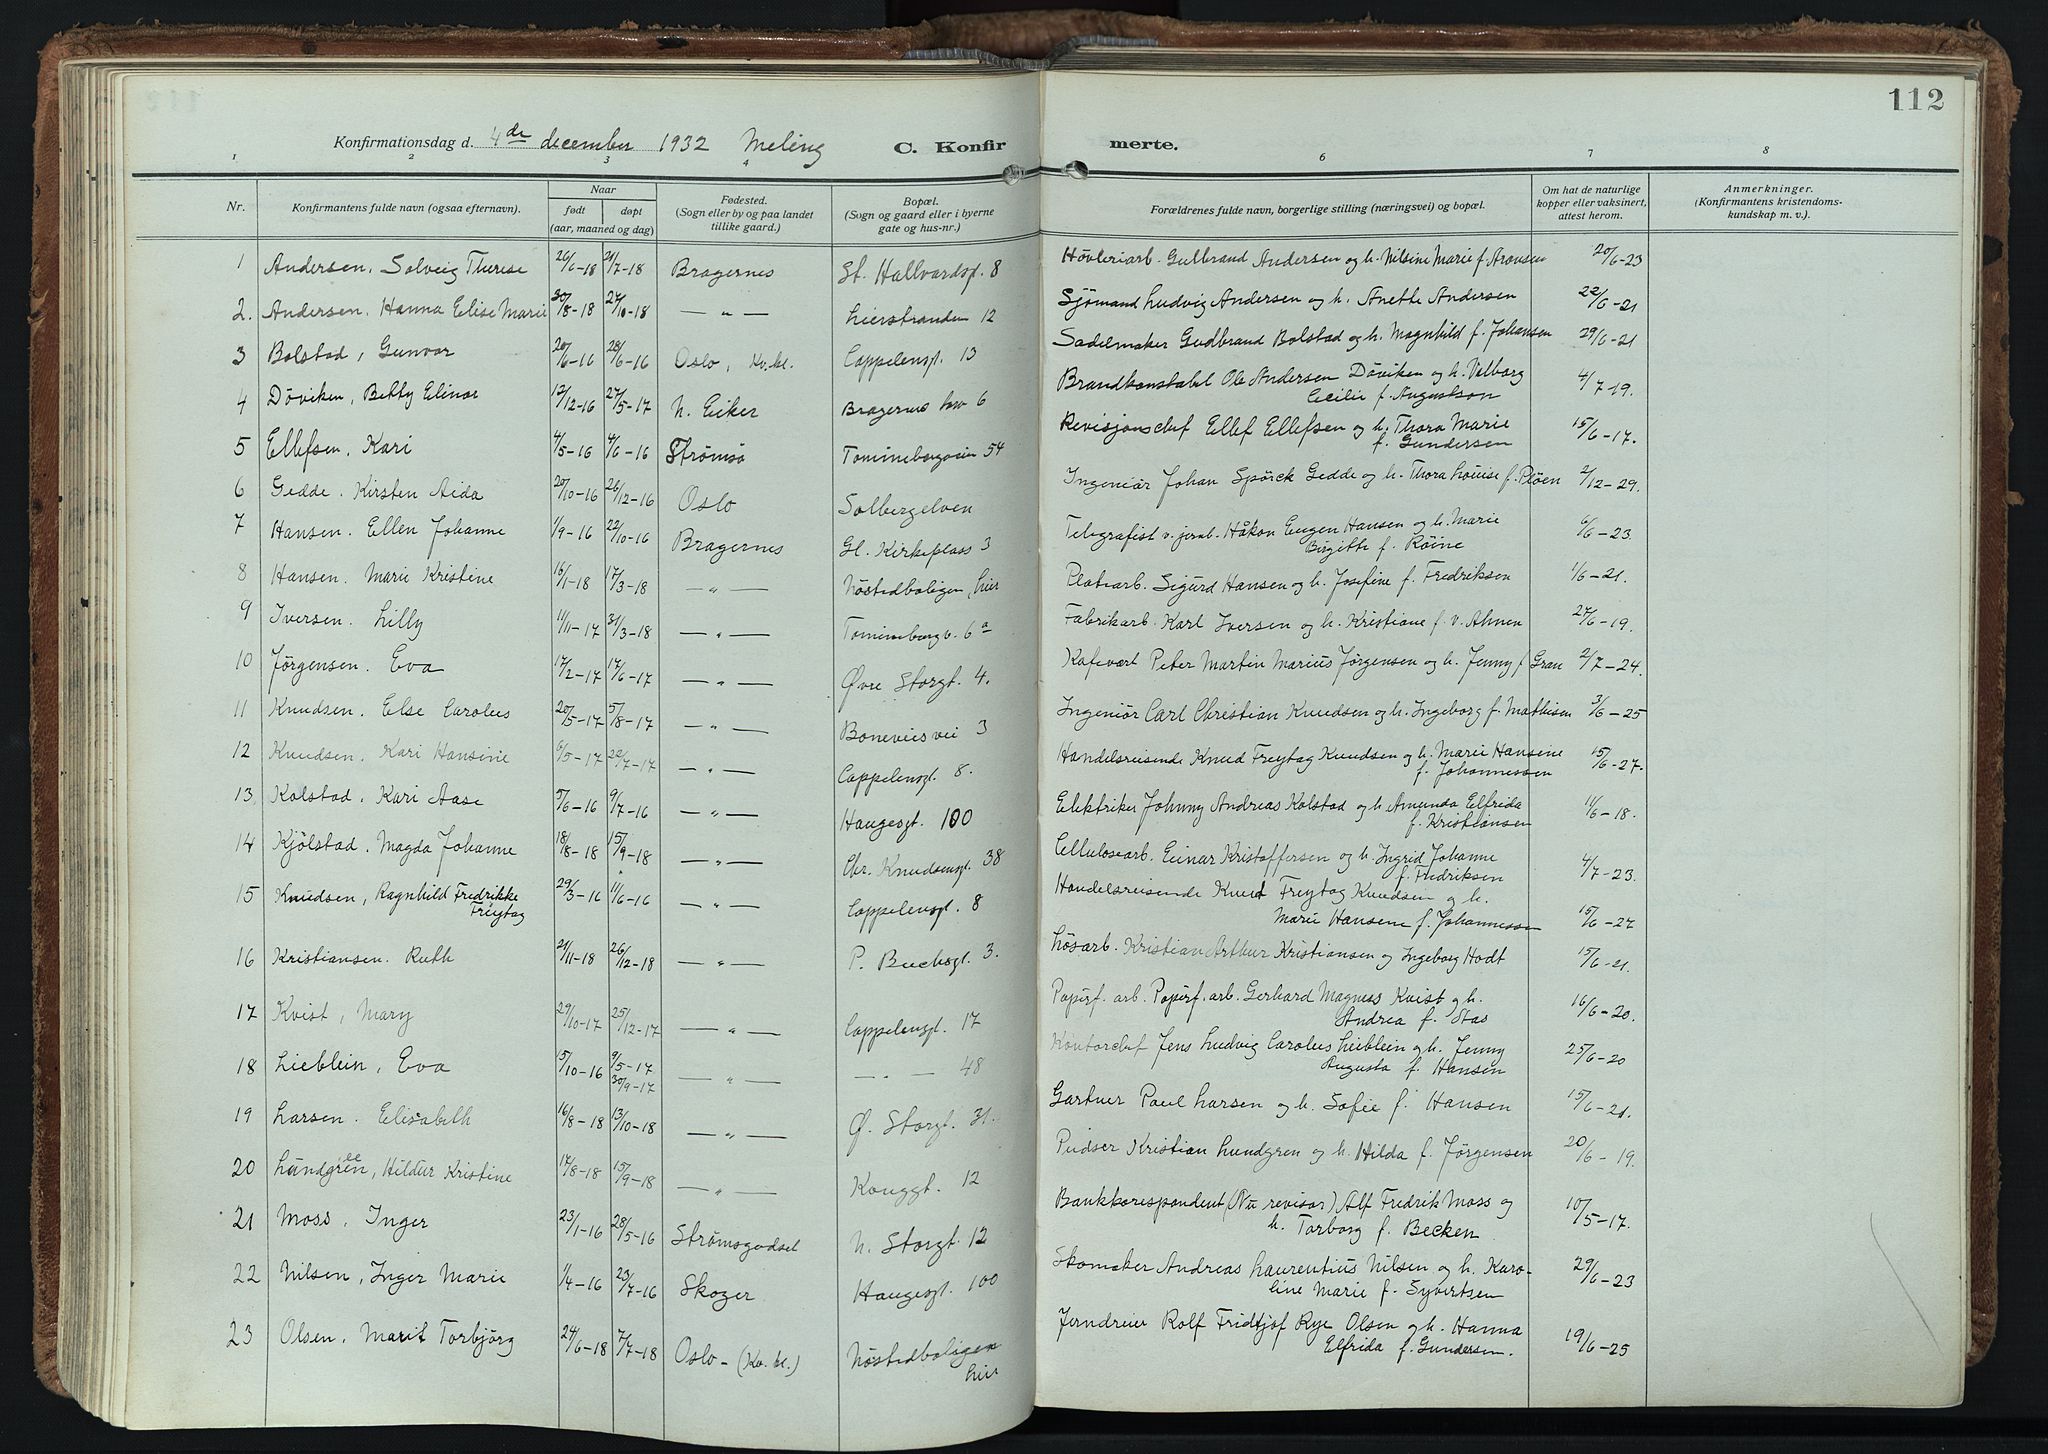 112
Konfirmationsdag d. 4de december 1932 Meling C. Konfirmerte.
1 2 3 4 6 7 8
Nr. Konfirmantens fulde navn (ogsaa efternavn). Naar født døpt (aar, maaned og dag) Fødested. (Sogn eller by og paa landet tillike gaard.) Bopæl. (Sogn og gaard eller i byerne gate og hus-nr.) Forældrenes fulde navn, borgerlige stilling (næringsvei) og bopæl. Om hat de naturlige kopper eller vaksinert, attest herom. Anmerkninger. (Konfirmantens kristendomskundskap m. v.)
1 Andersen, Solveig Therese 26/6-18 21/7-18 Bragernes St. Hallvardsg. 8 Høvleriarb. Gulbrand Andersen og h. Nilsine Marie f. Aronsen 20/6-23
2. Andersen. Hanna Elise Marie 30/8-18 27/10-18 — „ — Lierstranden 12 Sjømand Ludvig Andersen og h. Anette Andersen 22/6-21
3 Bolstad, Gunvor 20/6-16 28/6-16 Oslo, Kv.kl. Cappelensgt. 13 Sadelmaker Gudbrand Bolstad og h. Magnhild f. Johansen 29/6-21
4 Döviken, Betty Elinor 13/12-16 27/5-17 N. Eiker Bragernes 6 Brandkonstabel Ole Andersen Döviken og h. Valborg Cecilie f. Augustson 4/7-19.
5 Ellefsen, Kari 4/5-16 4/6-16 Strømsø Tomineborgveien 54 Revisjonschef Ellef Ellefsen og h. Thora Marie f. Gundersen 15/6-17.
6 Gedde. Kirsten Aida 20/10-16 26/12-16 Oslo Solbergelven Ingeniör Johan Spörck Gedde og h. Thora Louise f. Plöen 2/12-29.
7 Hansen. Ellen Johanne 1/9-16 22/10-16 Bragernes Gl. Kirkeplass 3 Telegrafist v. jernb. Håkon Eugen Hansen og h. Marie Birgitte f. Röine 6/6-23.
8 Hansen. Marie Kristine 16/1-18 17/3-18 — „ — Nöstedboligen, Lier Platearb. Sigurd Hansen og h. Josefine f. Fredriksen 1/6-21.
9 Iversen. Lilly 11/11-17 31/3-18 — „ — Tomineborgv. 6a Fabrikarb. Karl Iversen og h. Kristiane f. v. Ahnen 27/6-19.
10 Jørgensen. Eva 17/2-17 17/6-17 — „ — Øvre Storgt. 4. Kafevært Peter Martin Marius Jørgensen og h. Jenny f Gran 2/7-24.
11 Knudsen. Else Carolus 20/5-17 5/8-17 — „ — Boneviesvei 3 Ingeniör Carl Christian Knudsen og h. Ingeborg f. Mathisen 3/6-25
12 Knudsen. Kari Hansine 6/5-17 22/7-17 — „ — Cappelensgt. 8. Handelsreisende Knud Freytag Knudsen og h. Marie Hansine f. Johannessen 15/6-27.
13 Kolstad. Kari Aase 5/6-16 9/7-16 — „ — Haugesgt. 100 Elektriker Johnny Andreas Kolstad og h. Amunda Elfrida f. Kristiansen 11/6-18.
14 Kjölstad. Magda Johanne 18/8-18 15/9-18 — „ — Chr. Knudsensgt. 38 Cellulosearb. Einar Kristoffersen og h. Ingrid Johanne f. Fredriksen 4/7-23.
15 Knudsen, Ragnhild Fredrikke Freytag 29/3-16 11/6-16 — „ — Cappelensgt. 8 Handelsreisende Knud Freytag Knudsen og h. Marie Hansene f. Johannessen 15/6-27
16 Kristiansen. Ruth 21/11-18 26/12-18 — „ — P. Buchsgt. 3. Lösarb. Kristian Arthur Kristiansen og Ingeborg Hodt 15/6-21.
17 Kvist, Mary 29/10-17 25/12-17 — „ — Cappelensgt. 17 Papirf. arb. Papirf. arb. Gerhard Magnus Kvist og h. Andrea f. Stas 16/6-20.
18 Lieblein, Eva 15/10-16 9/5-17 30/9-17 — „ — — „ — 48 Kontorchef Jens Ludvig Carolus Lieblein og h. Jenny Augusta f. Hansen 25/6-20
19 Larsen. Elisabeth 16/8-18 13/10-18 — „ — Ø. Storgt. 31. Gartner Paul Larsen og h. Sofie f. Hansen 15/6-21.
20 Lundgreen, Hildur Kristine 17/8-18 15/9-18 — „ — Konggt. 12 Pudser Kristian Lundgren og h. Hilda f. Jørgensen 20/6-19.
21 Moss, Inger 23/1-16 28/5-16 Strømsgodset N. Storgt. 12 Bankkorespondent (Nu revisor) Alf Fredrik Moss og h. Torborg f. Becken 10/5-17.
22 Nilsen, Inger Marie 1/4-16 23/7-16 Skoger Haugesgt. 100 Skomaker Andreas Laurentius Nilsen og h. Karoline Marie f. Syvertsen 29/6-23
23 Olsen. Marit Torbjörg 24/6-18 7/7-18 Oslo-(Kv. kl.) Nöstedboligen Lier Jerndreier Rolf Fridtjof Rye Olsen og h. Hanna Elfrida f. Gundersen. 19/6-25